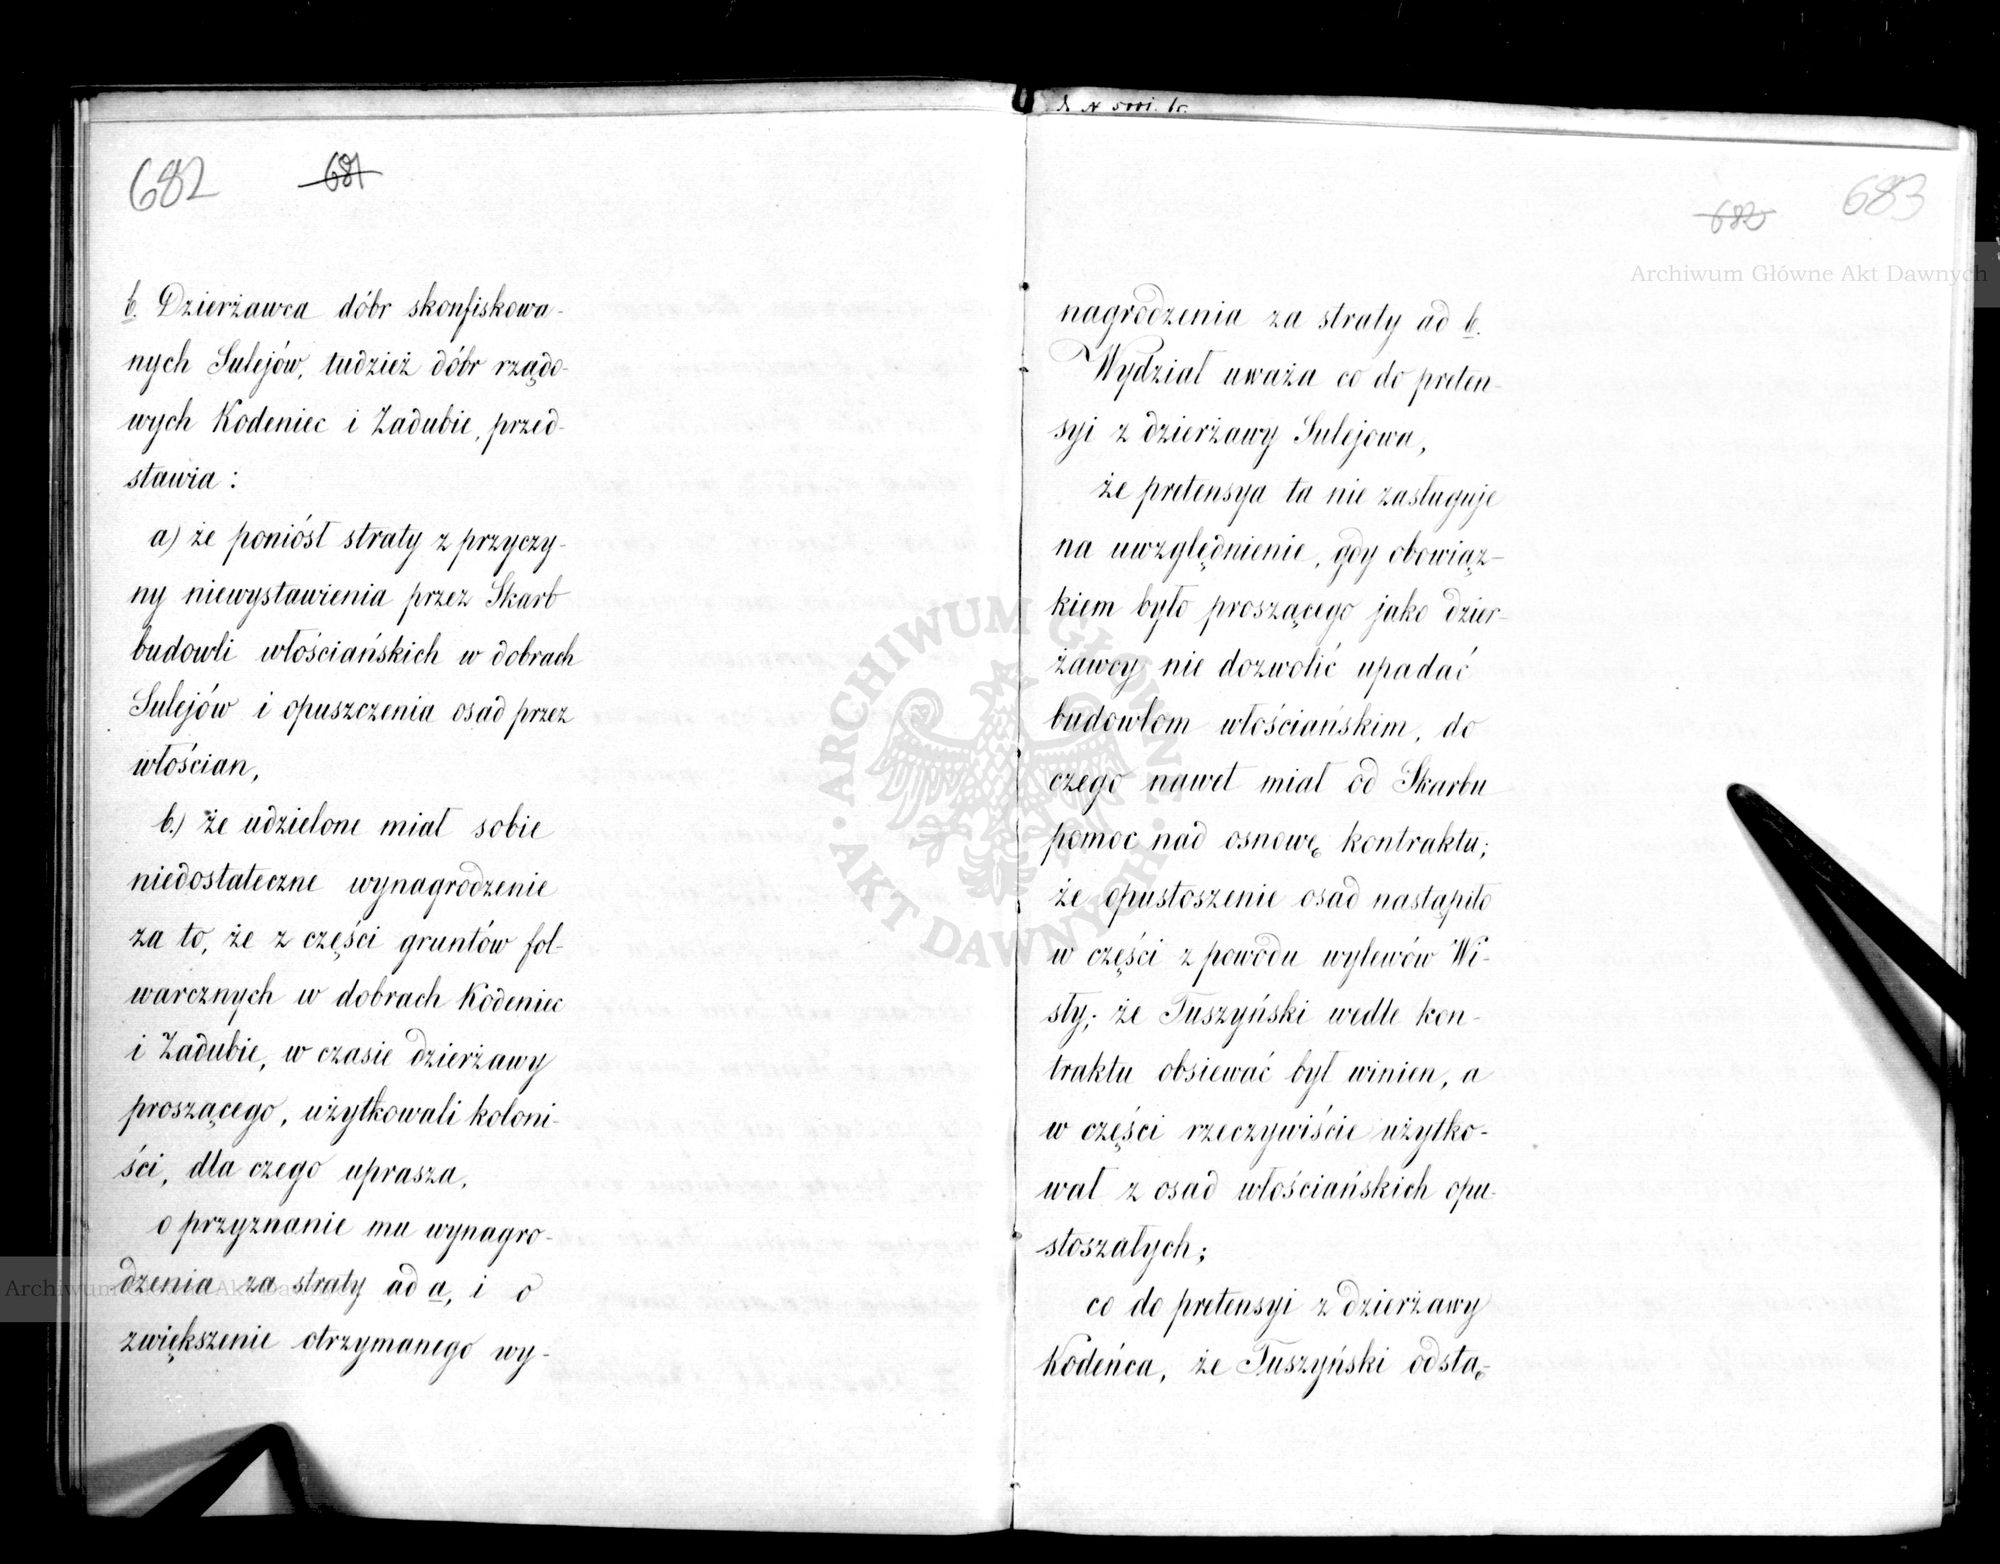 682 681
b. Dzierżawca dóbr skonfiskowa-
nych Sulejów, tudzież dóbr rządo-
wych Kodeniec i Zadubie, przed-
stawia:
a) że poniósł straty z przyczy-
ny niewystawienia przez Skarb
budowli włościańskich w dobrach
Sulejów i opuszczenia osad przez
włościan,
b.) że udzielone miał sobie
niedostateczne wynagrodzenie
za to, że z części gruntów fol-
warcznych w dobrach Kodeniec
i Zadubie, w czasie dzierżawy
proszącego, użytkowali koloni-
ści, dla czego uprasza,
o przyznanie mu wynagro-
dzenia za straty ad a, i o
zwiększenie otrzymanego wy-
682 683
Archiwum Główne Akt Dawnych
nagrodzenia za straty ad b.
Wydział uważa co do preten-
syi z dzierżawy Sulejowa,
że pretensya ta nie zasługuje
na uwzględnienie, gdy obowiąz-
kiem było proszącego jako dzier-
żawcy nie dozwolić upadać
budowlom włościańskim, do
czego nawet miał od Skarbu
pomoc nad osnowę kontraktu;
że opustoszenie osad nastąpiło
w części z powodu wylewów Wi-
sły; że Tuszyński wedle kon-
traktu obsiewać był winien, a
w części rzeczywiście użytko-
wał z osad włościańskich opu-
stoszałych;
co do pretensyi z dzierżawy
Kodeńca, że Tuszyński odstą-
ARCHIWUM GŁÓWNE
AKT DAWNYCH
Archiwum Główne Akt Dawnych